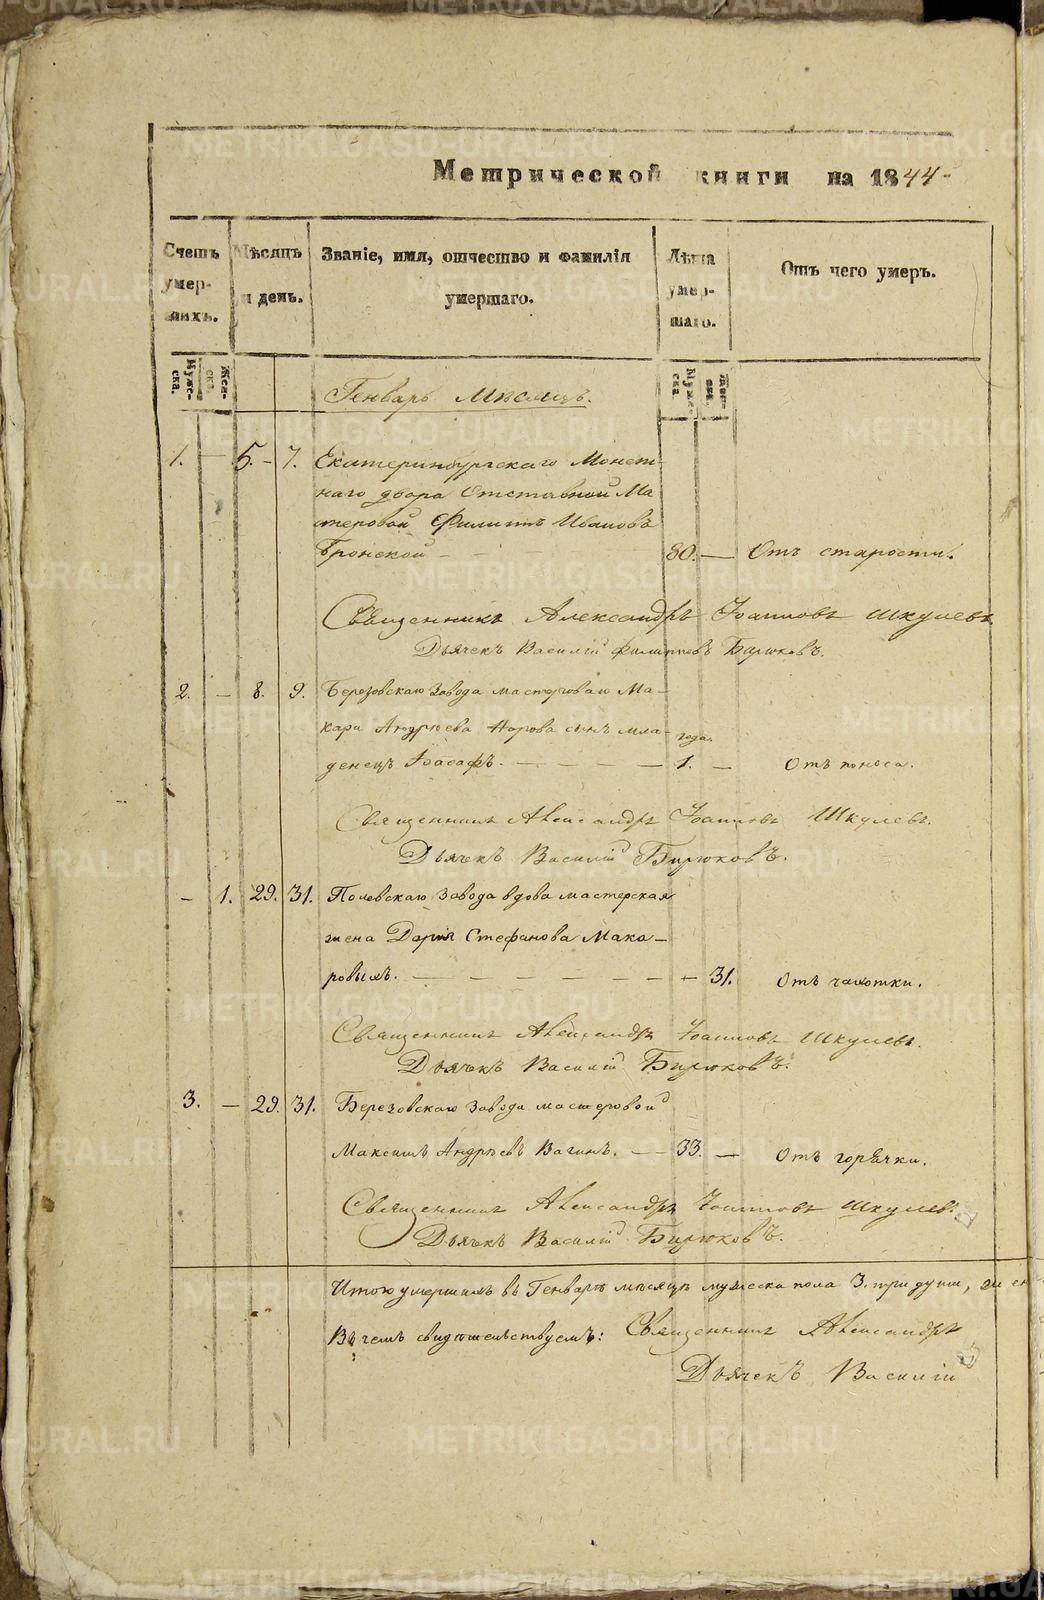 Метрической книги на 1844
Счетъ умер-шихъ.
Мѣсяцъ и день.
Званіе, имя, отчество и фамилія умершаго.
Лѣта умер-шаго.
Отъ чего умеръ.
Муже-ска.
Жен-ска.
Муже-ска.
Жен-ска.
Генварь мѣсяцъ.
1. — 5. – 7. Екатеринбургскаго Монет-
наго двора Отставной Ма
стеровой Филиппъ Ивановъ
Бронской — 80. — Отъ старости.
Священникъ Александръ Іоанновъ Шкулевъ
Дьячекъ Василій Филипповъ Бирюковъ.
2. — 8. 9. Березовскаго Завода мастероваго Ма-
кара Андреева Норова сынъ мла- года.
денецъ Іоасафъ. — — — — — 1. — Отъ поноса.
Священникъ Александръ Іоанновъ Шкулевъ.
Дьячекъ Василій Бирюковъ.
– 1. 29. 31. Полевскаго Завода вдова мастерская
жена Дарья Стефанова Мака-
ровыхъ. — — — — — — — 31. Отъ чахотки.
Священникъ Александръ Іоанновъ Шкулевъ.
Дьячекъ Василій Бирюковъ.
3. — 29. 31. Березовскаго Завода мастеровой
Максимъ Андреевъ Вагинъ. — 33. — Отъ горячки.
Священникъ Александръ Іоанновъ Шкулевъ.
Дьячекъ Василій Бирюковъ.
Итого умершихъ въ Генварѣ мѣсяцѣ мужеска пола 3. три души,
Въ чемъ свидѣтельствуемъ: Священникъ Александръ
Дьячекъ Василій
METRIKI.GASO-URAL.RU